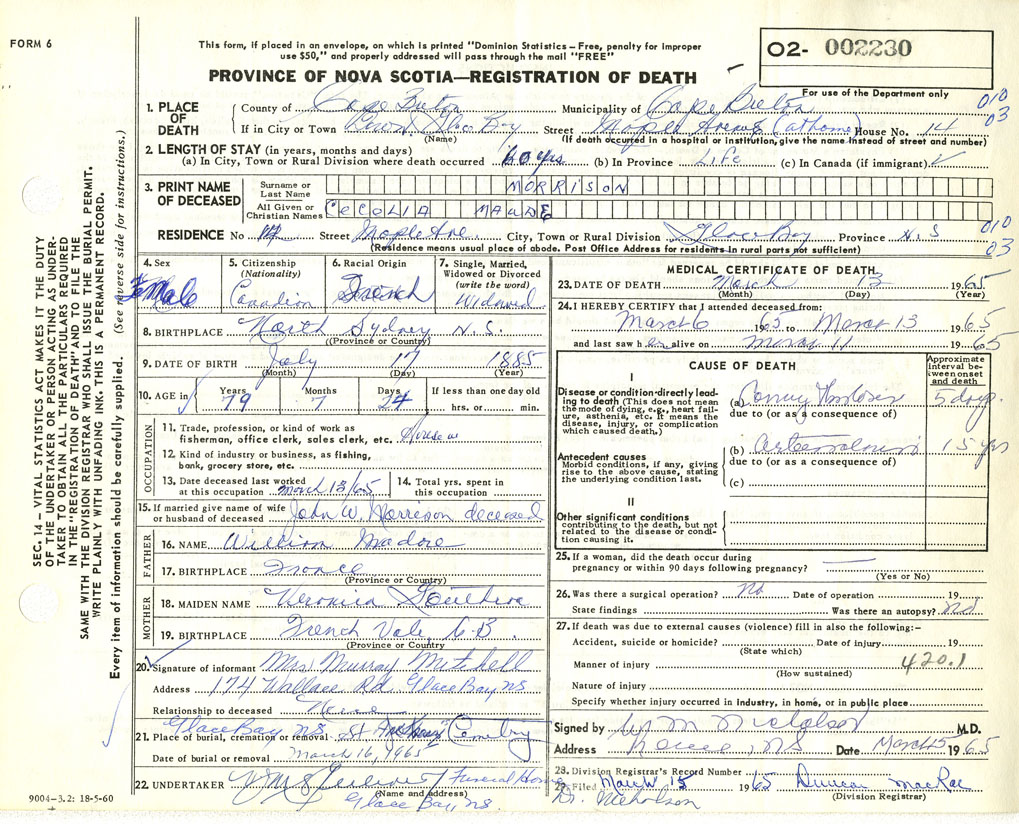 FORM 6
This form, if placed in an envelope, on which is printed "Dominion Statistics – Free, penalty for improper
use $50," and properly addressed will pass through the mail "FREE"
O2- 002230
PROVINCE OF NOVA SCOTIA—REGISTRATION OF DEATH
For use of the Department only
010
03
1. PLACE OF DEATH
County of Cape Breton Municipality of Cape Breton
If in City or Town Glace Bay Street Maple Avenue (at home) House No. 14
(Name) (If death occurred in a hospital or institution, give the name instead of street and number)
2. LENGTH OF STAY (in years, months and days)
(a) In City, Town or Rural Division where death occurred 60 yrs (b) In Province Life (c) In Canada (if immigrant)
3. PRINT NAME OF DECEASED
Surname or Last Name MORRISON
All Given or Christian Names CECOLIA MAUDE
RESIDENCE No 14 Street Maple Ave. City, Town or Rural Division Glace Bay Province N.S
010
03
(Residence means usual place of abode. Post Office Address for residents in rural parts not sufficient)
4. Sex
Female
5. Citizenship (Nationality)
Canadian
6. Racial Origin
French
7. Single, Married, Widowed or Divorced (write the word)
Widowed
8. BIRTHPLACE North Sydney N.S.
(Province or Country)
9. DATE OF BIRTH July 17 1885
(Month) (Day) (Year)
10. AGE in
Years 79 Months 7 Days 24 If less than one day old
hrs. or min.
OCCUPATION
11. Trade, profession, or kind of work as
fisherman, office clerk, sales clerk, etc.
12. Kind of industry or business, as fishing,
bank, grocery store, etc.
13. Date deceased last worked
at this occupation March 13/65
14. Total yrs. spent in
this occupation
15. If married give name of wife
or husband of deceased John W. Morrison deceased
FATHER
16. NAME William Madore
17. BIRTHPLACE France
(Province or Country)
MOTHER
18. MAIDEN NAME Veronica
19. BIRTHPLACE French Vale C.B.
(Province or Country
20. Signature of informant Mrs Murray Mitchell
Address 174 Wallace Rd. Glace Bay NS
Relationship to deceased Niece
21. Place of burial, cremation or removal Glace Bay N.S. St Anthony Cemetry
Date of burial or removal March 16, 1965
22. UNDERTAKER Funeral Home
(Name and address)
Glace Bay, N.S.
MEDICAL CERTIFICATE OF DEATH
23. DATE OF DEATH March 13 1965
(Month) (Day) (Year)
24. I HEREBY CERTIFY that I attended deceased from:
March 6 1965 to March 13 1965
and last saw her alive on March 11 1965
CAUSE OF DEATH
Approximate interval between onset and death
I
Disease or condition directly leading
to death (This does not mean
the mode of dying, e.g., heart failure,
asthenia, etc. It means the
disease, injury, or complication
which caused death.)
(a) 5 days
due to (or as a consequence of)
(b) 15 yrs
Antecedent causes
Morbid conditions, if any, giving
rise to the above cause, stating
the underlying condition last.
due to (or as a consequence of)
(c)
II
Other significant conditions
contributing to the death, but not
related to the disease or condition
causing it.
25. If a woman, did the death occur during
pregnancy or within 90 days following pregnancy?
(Yes or No)
26. Was there a surgical operation? No Date of operation 19
State findings Was there an autopsy? No
27. If death was due to external causes (violence) fill in also the following:–
Accident, suicide or homicide? Date of injury 19
(State which)
Manner of injury 420.1
(How sustained)
Nature of injury
Specify whether injury occurred in industry, in home, or in public place
Signed by W M Nicholson M.D.
Address NS Date March 15 1965
28. Division Registrar's Record Number
Filed March 15 1965 Duncan MacRae
(Division Registrar)
Dr. Nicholson
9004-3.2: 18-5-60
SEC. 14 – VITAL STATISTICS ACT MAKES IT THE DUTY
OF THE UNDERTAKER OR PERSON ACTING AS UNDERTAKER
TO OBTAIN ALL THE PARTICULARS REQUIRED
IN THE "REGISTRATION OF DEATH" AND TO FILE THE
SAME WITH THE DIVISION REGISTRAR WHO SHALL ISSUE THE BURIAL PERMIT.
WRITE PLAINLY WITH UNFADING INK. THIS IS A PERMANENT RECORD.
Every item of information should be carefully supplied. (See reverse side for instructions.)